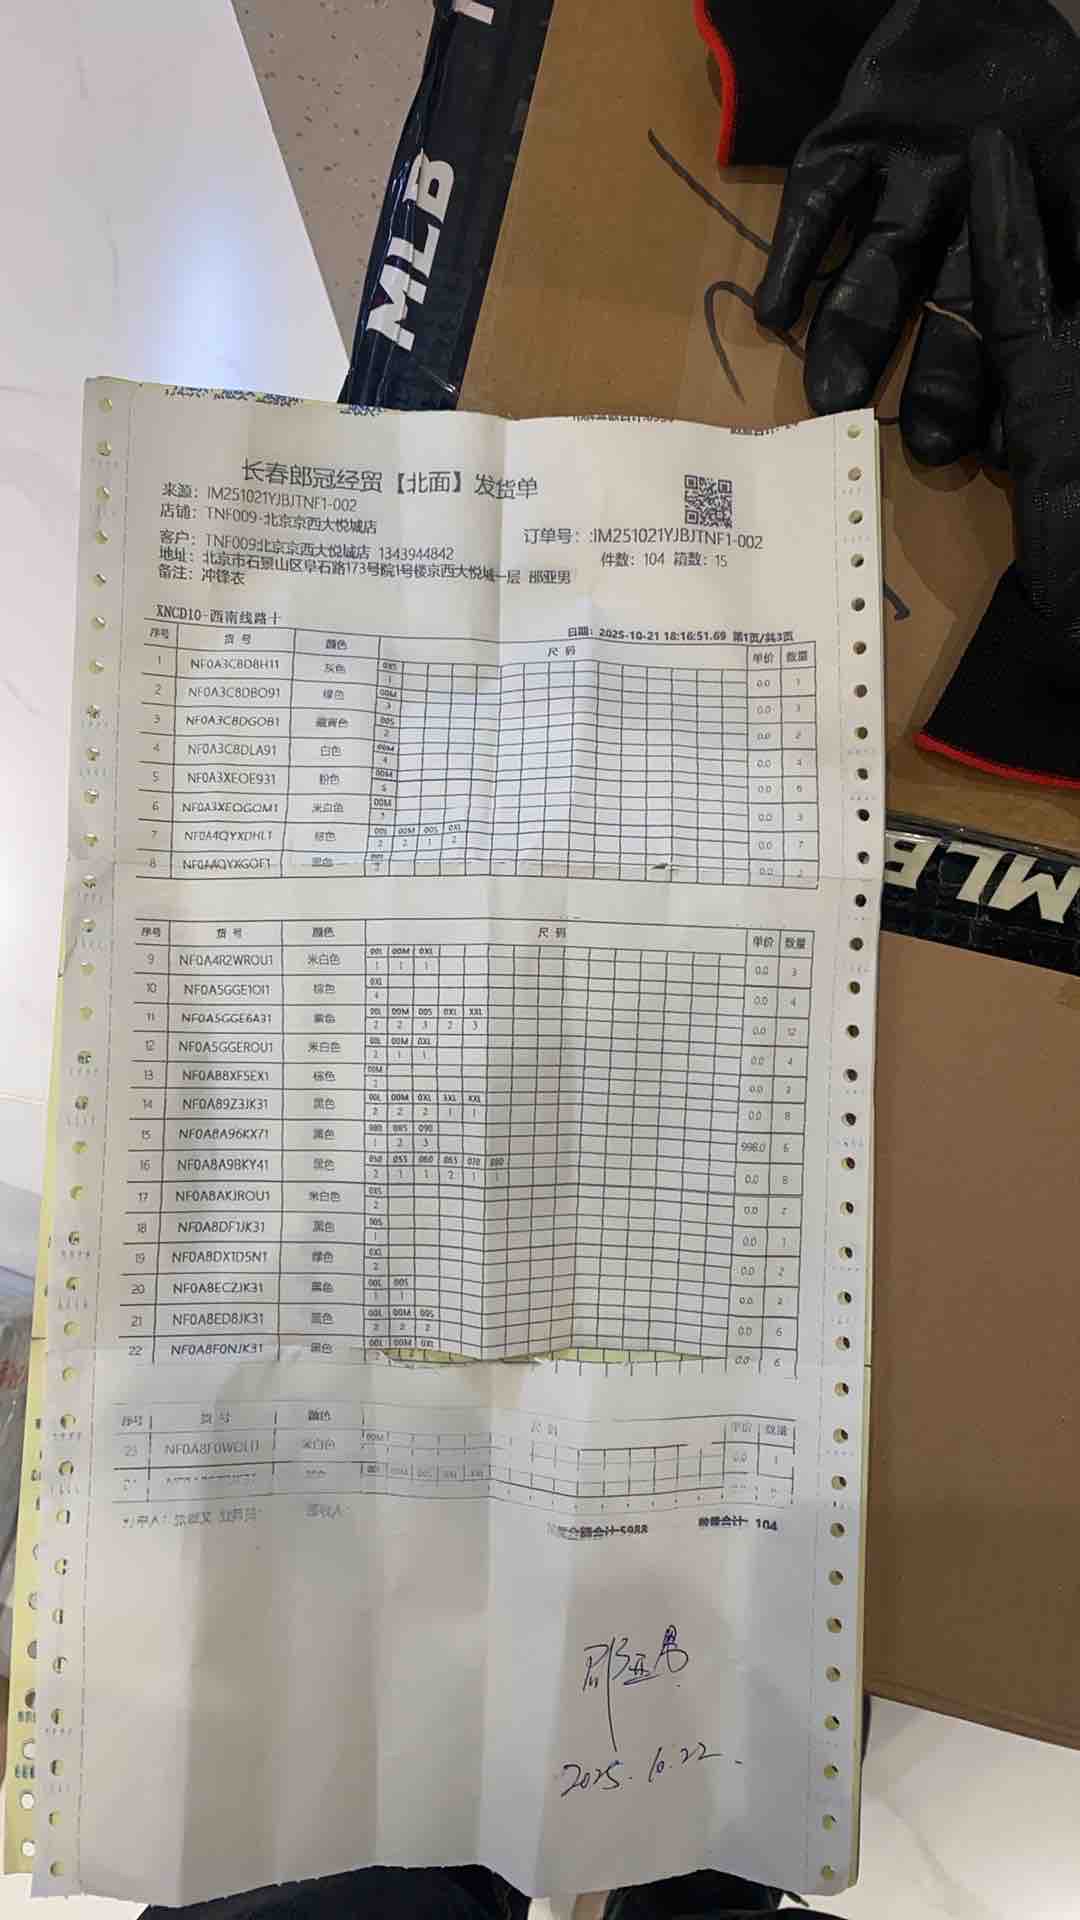 MLB
长春郎冠经贸【北面】发货单
来源：IM251021YJBJTNF1-002
店铺：TNF009-北京京西大悦城店
订单号：:IM251021YJBJTNF1-002
客户：TNF009北京京西大悦城店 1343944842
件数：104 箱数：15
地址：北京市石景山区阜石路173号院1号楼京西大悦城一层 邵亚男
备注：冲锋衣
XNCD10-西南线路十
日期：2025-10-21 18:16:51.69 第1页/共3页
序号 货号 颜色 尺码 单价 数量
1 NF0A3C8D8H11 灰色 0XS 1 0.0 1
2 NF0A3C8DBO91 绿色 00M 3 0.0 3
3 NF0A3C8DGOB1 藏青色 00S 2 0.0 2
4 NF0A3C8DLA91 白色 00M 4 0.0 4
5 NF0A3XEOE931 粉色 00M 0.0
6 NF0A3XEOGQM1 米白色 00M 3 0.0 3
7 NF0A4QYXDHL1 棕色 00L 00M 00S 0XL 2 2 1 2 0.0 7
8 NF0A4QYXGOF1 黑色 0.0 2
序号 货号 颜色 尺码 单价 数量
9 NF0A4R2WROU1 米白色 00L 00M 0XL 1 1 1 0.0 3
10 NF0A5GGE1OI1 棕色 0XL 4 0.0 4
11 NF0A5GGE6A31 00L 00M 00S 0XL XXL 2 2 3 2 3 0.0 12
12 NF0A5GGEROU1 米白色 00L 00M 0XL 2 1 1 0.0 4
13 NF0A88XF5EX1 棕色 00M 2 0.0 2
14 NF0A89Z3JK31 黑色 00L 00M 0XL XXL 2 2 2 1 1 0.0 8
15 NF0A8A96KX71 黑色 080 085 090 1 2 3 998.0 6
16 NF0A8A9BKY41 黑色 050 055 060 065 070 080 2 1 1 2 1 1 0.0 8
17 NF0A8AKJROU1 米白色 0XS 2 0.0 2
18 NF0A8DF1JK31 黑色 00S 1 0.0 1
19 NF0A8DX1D5N1 绿色 0XL 2 0.0 2
20 NF0A8ECZJK31 黑色 00L 00S 1 1 0.0 2
21 NF0A8ED8JK31 黑色 00L 00M 00S 2 2 2 0.0 6
22 NF0A8F0NJK31 黑色 00L 00M 0XL 2 0.0 6
序号 货号 颜色 尺码 单价 数量
23 米白色 00M 0.0 1
00L 00M 00S 0XL XXL
合计5988 数量合计：104
邵亚男
2025.10.22
MLB